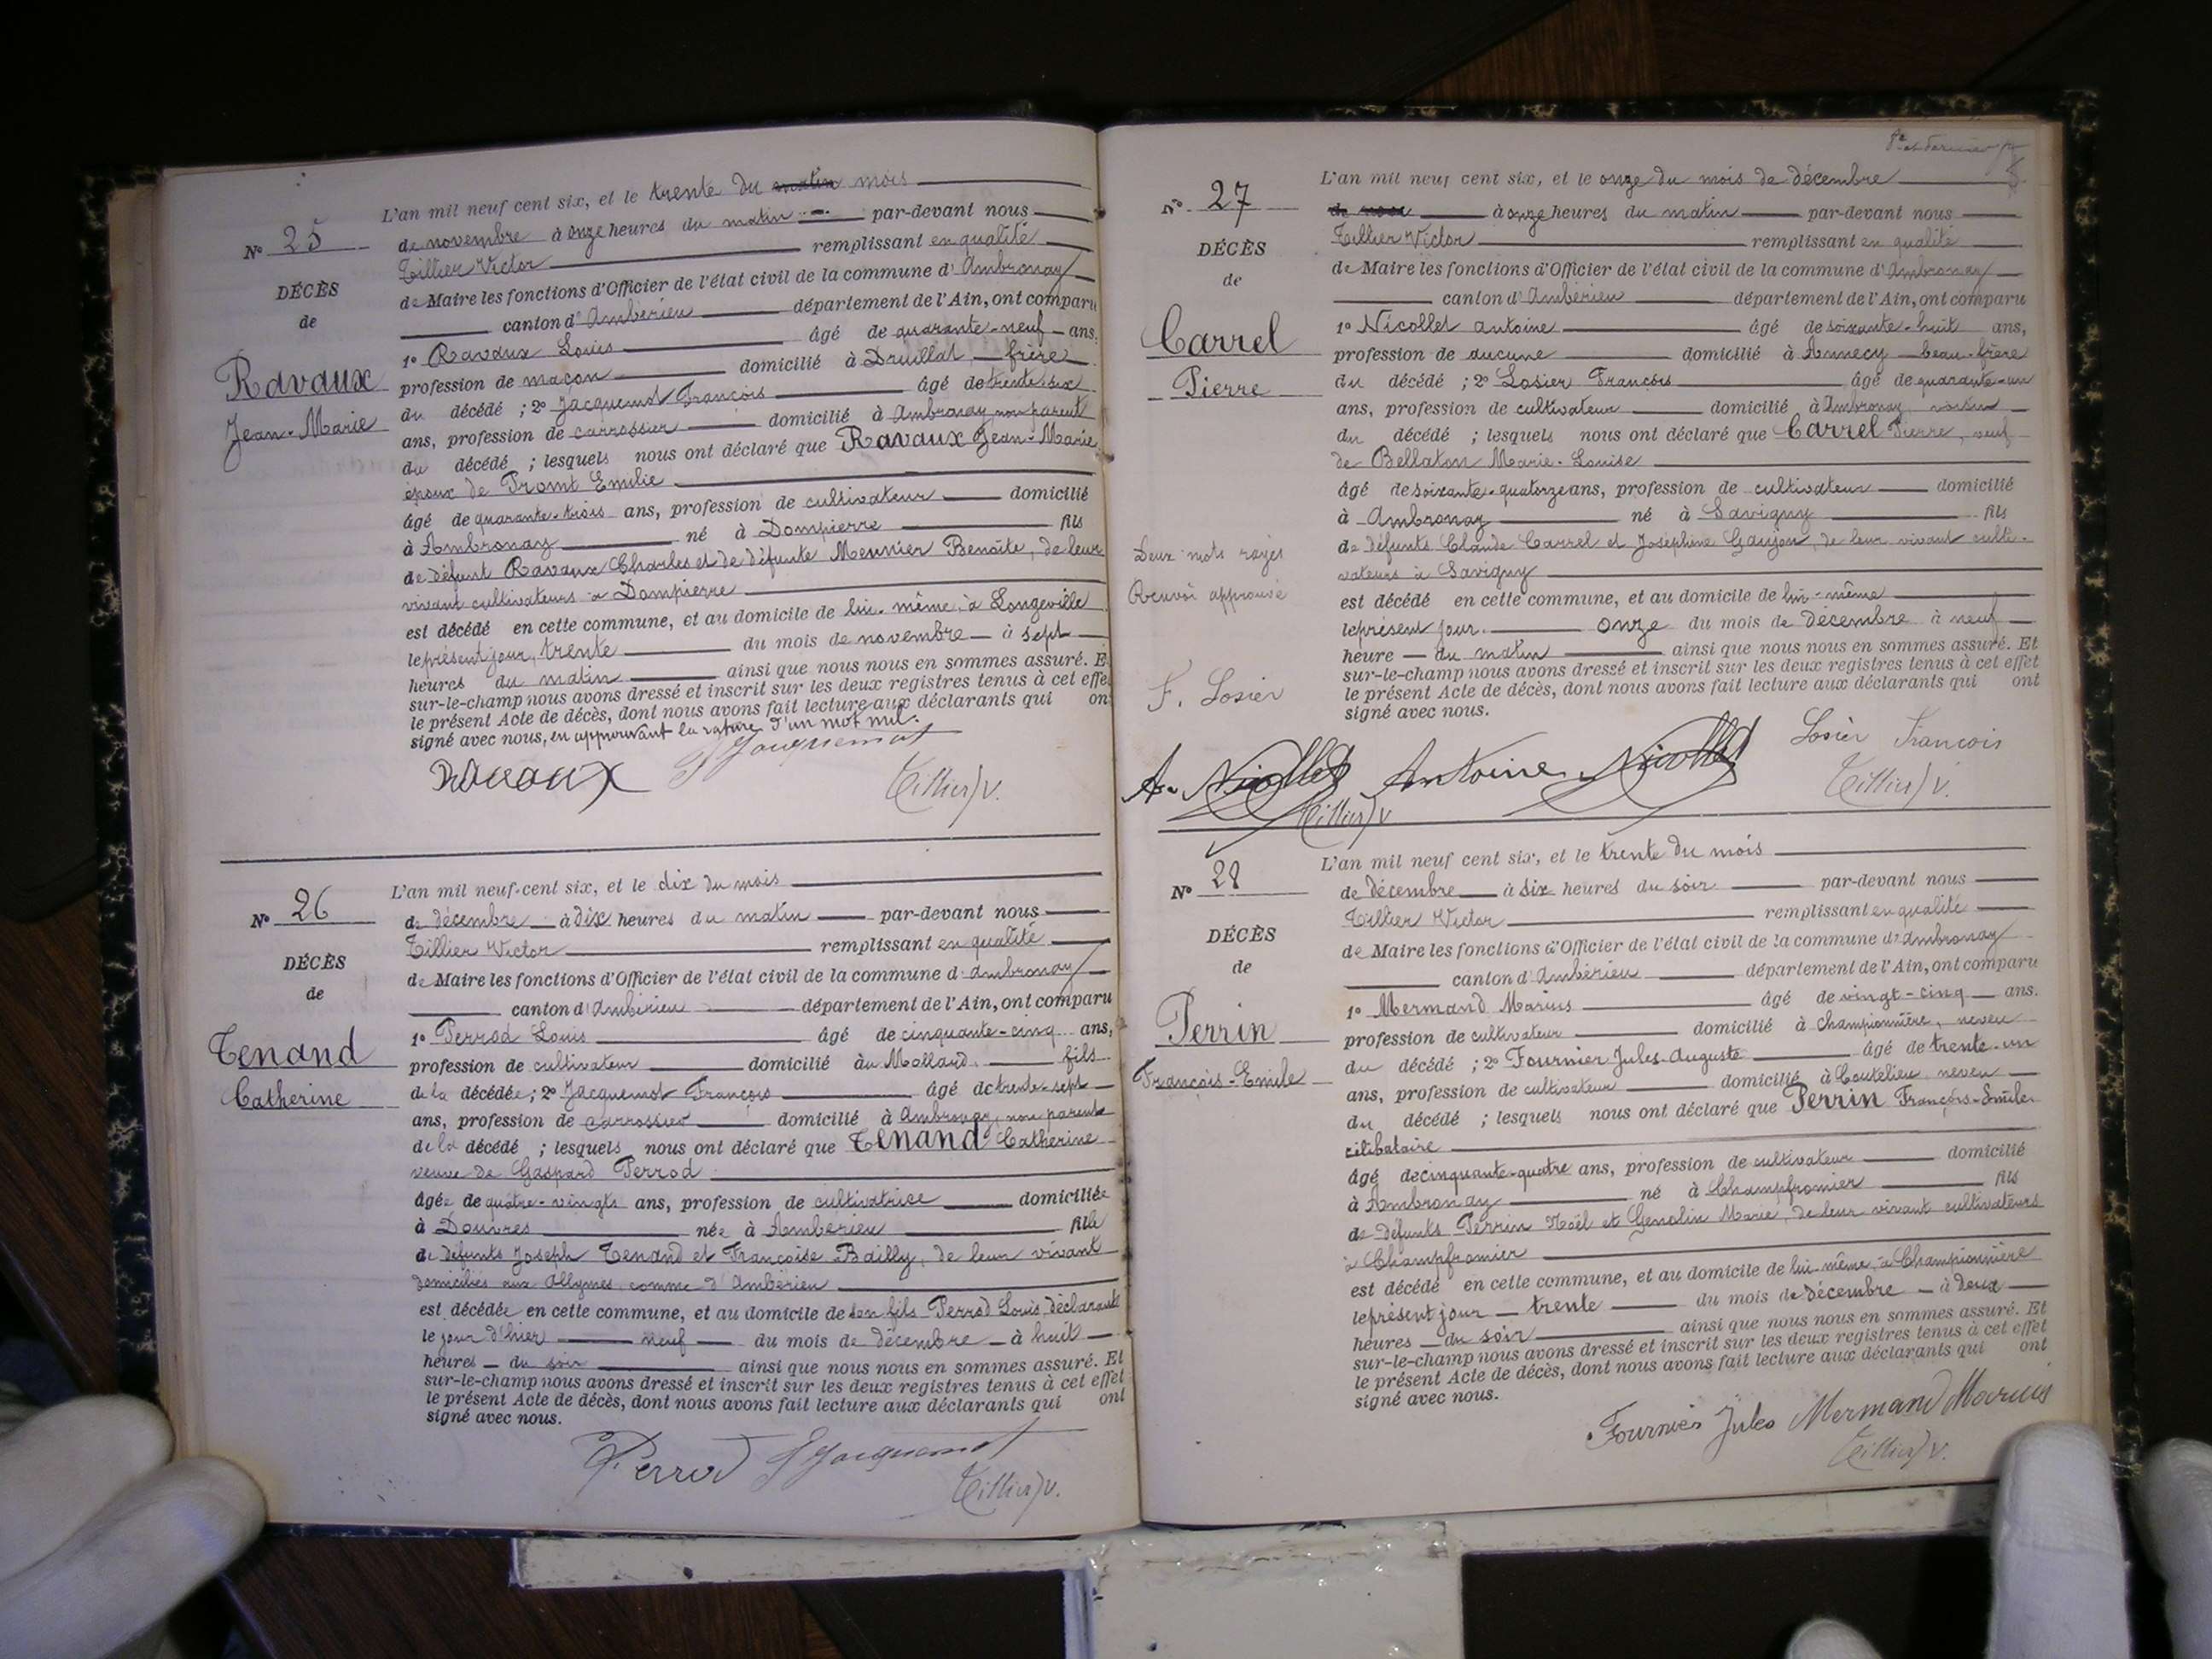 N° 25
DÉCÈS
de
Ravaux
Jean-Marie
L'an mil neuf cent six, et le trente du matin mois
de novembre à onze heures du matin par-devant nous
Tillier Victor remplissant en qualité
de Maire les fonctions d'Officier de l'état civil de la commune d'Ambronay
canton d'Ambérieu département de l'Ain, ont comparu
1° Ravaux Louis âgé de quarante-neuf ans,
profession de maçon domicilié à Druillat, frère
du décédé ; 2° Jacquemot François âgé de trente-six
ans, profession de carrossier domicilié à Ambronay, non parent
du décédé ; lesquels nous ont déclaré que Ravaux Jean-Marie
époux de Promt Emilie
âgé de quarante-trois ans, profession de cultivateur domicilié
à Ambronay né à Dompierre fils
de défunt Ravaux Charles et de défunte Meunier Benoîte, de leur
vivant cultivateurs à Dompierre
est décédé en cette commune, et au domicile de lui-même, à Longeville
le présent jour, trente du mois de novembre à sept
heures du matin ainsi que nous nous en sommes assuré. Et
sur-le-champ nous avons dressé et inscrit sur les deux registres tenus à cet effet
le présent Acte de décès, dont nous avons fait lecture aux déclarants qui ont
signé avec nous, en approuvant la rature d'un mot nul.
Ravaux F Jacquemot
Tillier V.
N° 26
DÉCÈS
de
Tenand
Catherine
L'an mil neuf cent six, et le dix du mois
de décembre à dix heures du matin par-devant nous
Tillier Victor remplissant en qualité
de Maire les fonctions d'Officier de l'état civil de la commune d'Ambronay
canton d'Ambérieu département de l'Ain, ont comparu
1° Perrod Louis âgé de cinquante-cinq ans,
profession de cultivateur domicilié au Mollard, fils
de la décédée ; 2° Jacquemot François âgé de trente-sept
ans, profession de carrossier domicilié à Ambronay, non parent
de la décédé ; lesquels nous ont déclaré que Tenand Catherine
veuve de Gaspard Perrod
âgée de quatre-vingts ans, profession de cultivatrice domiciliée
à Douvres née à Ambérieu fille
de défunts Joseph Tenand et Françoise Bailly, de leur vivant
domiciliés aux Allymes, comme d'Ambérieu
est décédée en cette commune, et au domicile de son fils Perrod Louis, déclarant
le jour d'hier neuf du mois de décembre à huit
heures du soir ainsi que nous nous en sommes assuré. Et
sur-le-champ nous avons dressé et inscrit sur les deux registres tenus à cet effet
le présent Acte de décès, dont nous avons fait lecture aux déclarants qui ont
signé avec nous.
Perrod F Jacquemot
Tillier V.
N° 27
DÉCÈS
de
Carrel
Pierre
Deux mots rayés
Renvoi approuvé
F. Losier
L'an mil neuf cent six, et le onze du mois de décembre
à onze heures du matin par-devant nous
Tillier Victor remplissant en qualité
de Maire les fonctions d'Officier de l'état civil de la commune d'Ambronay
canton d'Ambérieu département de l'Ain, ont comparu
1° Nicollet Antoine âgé de soixante-huit ans,
profession de aucune domicilié à Annecy beau-frère
du décédé ; 2° Losier François âgé de quarante-un
ans, profession de cultivateur domicilié à Ambronay, voisin
du décédé ; lesquels nous ont déclaré que Carrel Pierre, veuf
de Bellaton Marie-Louise
âgé de soixante-quatorze ans, profession de cultivateur domicilié
à Ambronay né à Savigny fils
de défunts Claude Carrel et Joséphine Goujon, de leur vivant culti-
vateurs à Savigny
est décédé en cette commune, et au domicile de lui-même
le présent jour onze du mois de décembre à neuf
heure du matin ainsi que nous nous en sommes assuré. Et
sur-le-champ nous avons dressé et inscrit sur les deux registres tenus à cet effet
le présent Acte de décès, dont nous avons fait lecture aux déclarants qui ont
signé avec nous.
A. Nicollet Antoine Nicollet Losier François
Tillier V Tillier V.
N° 28
DÉCÈS
de
Perrin
François-Emile
L'an mil neuf cent six, et le trente du mois
de décembre à six heures du soir par-devant nous
Tillier Victor remplissant en qualité
de Maire les fonctions d'Officier de l'état civil de la commune d'Ambronay
canton d'Ambérieu département de l'Ain, ont comparu
1° Mermand Marius âgé de vingt-cinq ans.
profession de cultivateur domicilié à Championnière, neveu
du décédé ; 2° Fournier Jules-Auguste âgé de trente-un
ans, profession de cultivateur domicilié à Coutelieu, neveu
du décédé ; lesquels nous ont déclaré que Perrin François-Emile
célibataire
âgé de cinquante-quatre ans, profession de cultivateur domicilié
à Ambronay né à Champfromier fils
de défunts Perrin Noël et Genolin Marie, de leur vivant cultivateurs
à Champfromier
est décédé en cette commune, et au domicile de lui-même, à Championnière
le présent jour trente du mois de décembre à deux
heures du soir ainsi que nous nous en sommes assuré. Et
sur-le-champ nous avons dressé et inscrit sur les deux registres tenus à cet effet
le présent Acte de décès, dont nous avons fait lecture aux déclarants qui ont
signé avec nous.
Fournier Jules Mermand Marius
Tillier V.